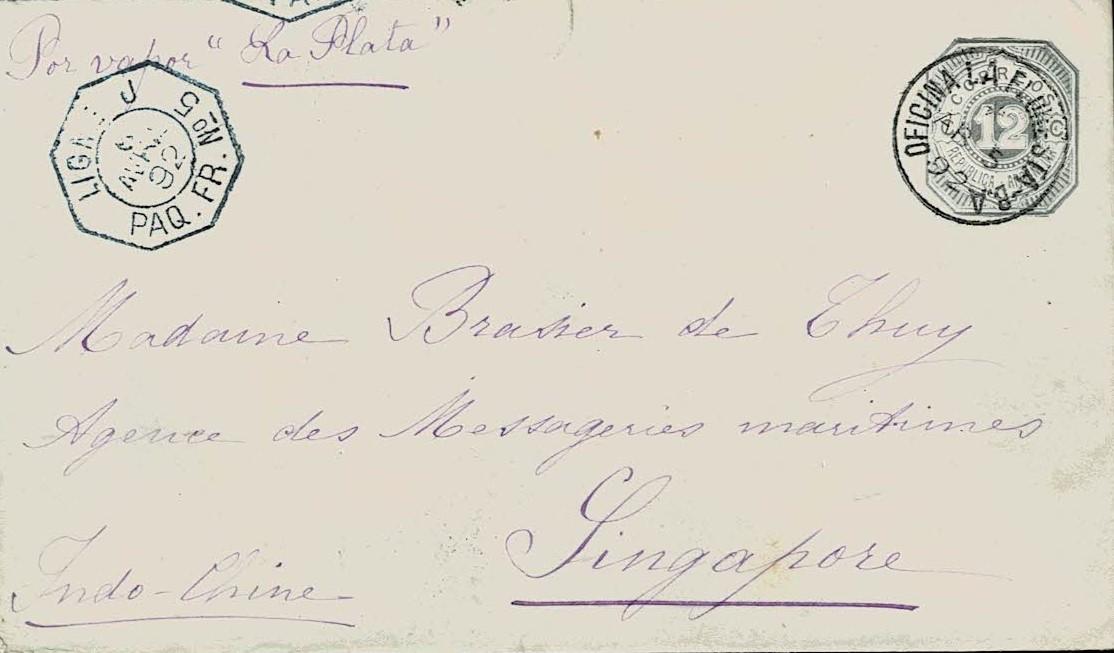 Por vapor "La Plata"
LIGNE J PAQ. FR. No 5
6 AVRIL 92
OFICINA LA FLORESTA-B-A
AB 5 92
CORREOS
12
REPUBLICA
Madame Brasier de Thuy
Agence des Messageries maritimes
Singapore
Indo-Chine